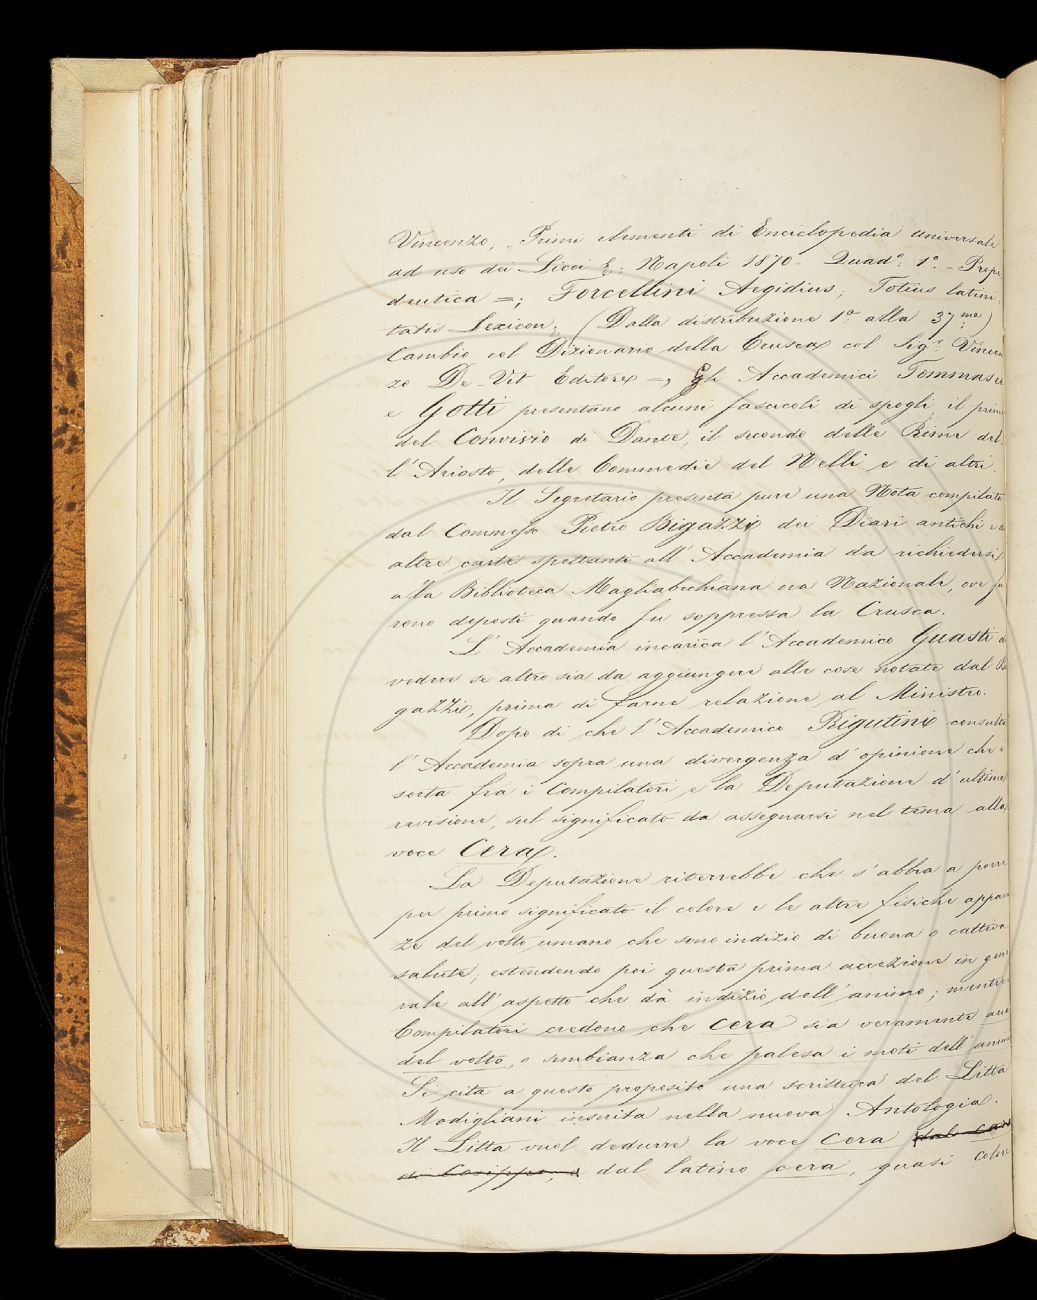 Vincenzo, „Primi elementi di Enciclopedia universale
ad uso dei Licei &: Napoli 1870 - Quad.º 1.º - Prope
deutica =; Forcellini Aegidius; Totius latini
tatis Lexicon; (Dalla distribuzione 1.ª alla 37.ma)
Cambio col Dizionario della Crusca col Sig.r Vincen
zo De-Vit Editore =; Gli Accademici Tommasei
e Gotti presentano alcuni fascicoli di spogli, il primo
del Convivio di Dante, il secondo delle Rime del
l'Ariosto, delle Commedie del Nelli e di altri.
Il Segretario presenta pure una Nota compilata
dal Commesso Pietro Bigazzi dei Diari antichi e
altre carte spettanti all'Accademia da richiedersi
alla Biblioteca Magliabechiana ora Nazionale, ove fu
rono deposti quando fu soppressa la Crusca.
L'Accademia incarica l'Accademico Guasti
vedere se altro sia da aggiungere alle cose notate dal Bi
gazzi, prima di farne relazione al Ministro.
Dopo di che l'Accademico Rigutini consulta
l'Accademia sopra una divergenza d'opinione che è
sorta fra i Compilatori e la Deputazione d'ultima
revisione, sul significato da assegnarsi nel tema alla
voce Cera.
La Deputazione riterrebbe che s'abbia a porre
per primo significato il colore e le altre fisiche apparen
ze del volto umano che sono indizio di buona o cattiva
salute, estendendo poi questa prima accezione in gene
rale all'aspetto che dà indizio dell'animo; mentre i
Compilatori credono che cera sia veramente aria
del volto, o sembianza che palesa i moti dell'animo
Si cita a questo proposito una scrittura del Litta
Modigliani inserita nella nuova Antologia.
Il Litta vuol dedurre la voce cera
dal latino cera, quasi colore